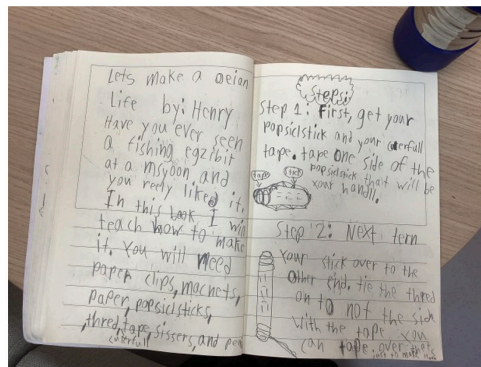 Lets make a oeian
Life by: Henry
Have you ever seen
a fishing egzibit
at a msyoon and
you reely liked it.
In this book I will
teach how to make
it. You will need
paper clips, macnets,
paper, popsiclsticks,
thred, tape, sissers, and pen
culerfull
Steps:
Step 1: First, get your
popsiclstick and your culerfull
tape. tape one side of the
popsiclstick that will be
your handll.
tape
stick
Step 2: Next tern
your stick over to the
other end, tie the thred
on to not the side
with the tape you
can tape over that
just to make